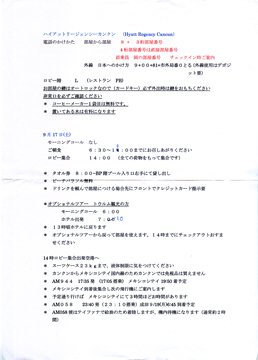 ハイアットリージェンシーカンクン (Hyatt Regency Cancun)
電話のかけかた 部屋から部屋 8 + 3桁部屋番号
4桁部屋番号は的部屋番号
チェックイン時ご案内
外線 日本へのかけ方 9+00+81+市外局番0とる(外線使用はデポジット要)
ロビー階 L (レストラン PB)
お部屋の鍵はオートロックなので(カードキー)必ず外出時は鍵をおもちください
非常口を必ずご確認ください
* コーヒーメーカー1袋目は無料です。
* 置いてある水は有料になります
8月17日(土)
モーニングコール なし
ご朝食 6:30~10:00までにお召しあがりください
ロビー集合 14:00 (全ての荷物をもって集合です)
* タオル券 8:00~BP階プール入り口右手にて貸し出し
* ビーチパラソル無料
* ドリンクを頼んで部屋につける場合先にフロントでクレジットカード提示要
* オプショナルツアー トゥルム観光の方
モーニングコール 6:00
ホテル出発
* 12時頃ホテルに戻ります
* オプショナルツアーから戻って部屋を使えます。14時までにチェックアウトおすませください
14時ロビー集合出発空港へ
* スーツケース23kgまで、液体制限に気をつけてください
* カンクンからメキシコシティ国内線のためカンクンでは免税品は買えません
* AM944 17:35発 (17:05搭乗) メキシコシティ 19:50着予定
* メキシコシティ到着後集合し次の飛行機にご案内します
* 予定通り行けば、メキシコシティにて3時間ほどお時間があります
* AM058 23:40発 (23:10搭乗) 成田8/19
* AM058便はティファナで給油のため着陸しますが、機内待機になります(通常約2時間)